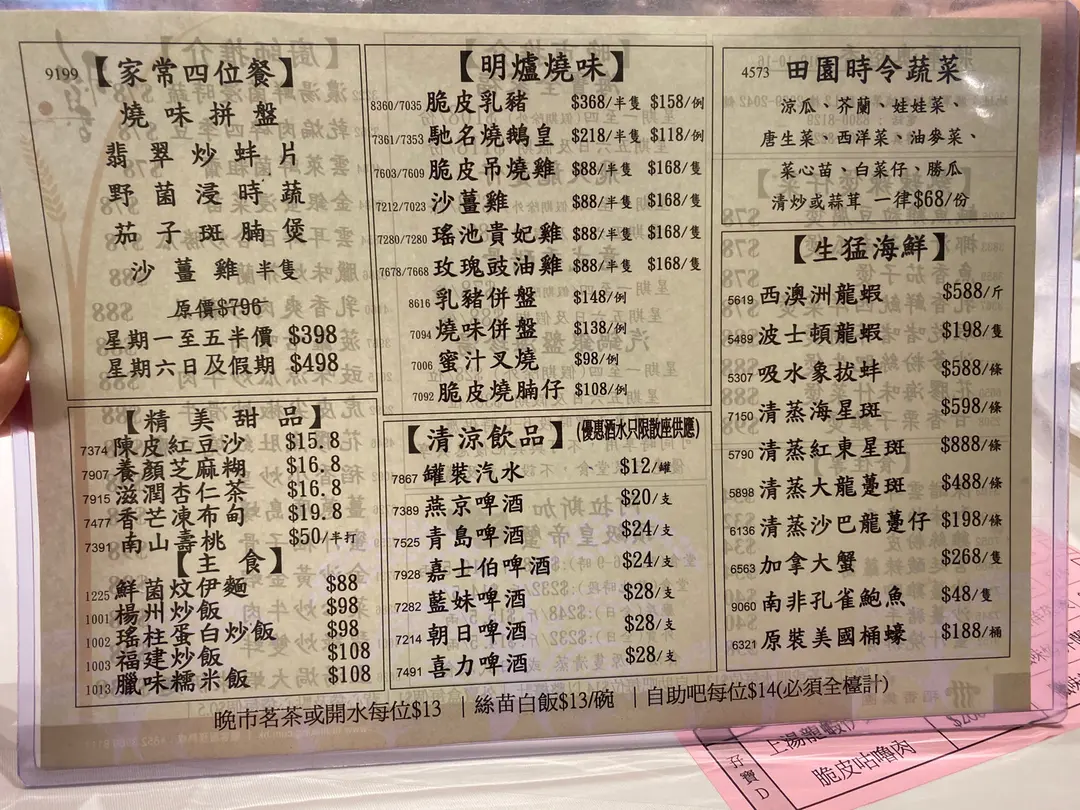 9199【家常四位餐】
燒味拼盤
翡翠炒蚌片
野菌浸時蔬
茄子斑腩煲
沙薑雞半隻
原價$796
星期一至五半價 $398
星期六日及假期 $498
【精美甜品】
7374 陳皮紅豆沙 $15.8
7907 養顏芝麻糊 $16.8
7915 滋潤杏仁茶 $16.8
7477 香芒凍布甸 $19.8
7391 南山壽桃 $50/半打
【主食】
1225 鮮菌炆伊麵 $88
1001 楊州炒飯 $98
1002 瑤柱蛋白炒飯 $98
1003 福建炒飯 $108
1013 臘味糯米飯 $108
【明爐燒味】
8360/7035 脆皮乳豬 $368/半隻 $158/例
7361/7353 馳名燒鵝皇 $218/半隻 $118/例
7603/7609 脆皮吊燒雞 $88/半隻 $168/隻
7212/7023 沙薑雞 $88/半隻 $168/隻
7280/7280 瑤池貴妃雞 $88/半隻 $168/隻
7678/7668 玫瑰豉油雞 $88/半隻 $168/隻
8616 乳豬併盤 $148/例
7094 燒味併盤 $138/例
7006 蜜汁叉燒 $98/例
7092 脆皮燒腩仔 $108/例
【清涼飲品】(優惠酒水只限散座供應)
7867 罐裝汽水 $12/罐
7389 燕京啤酒 $20/支
7525 青島啤酒 $24/支
7928 嘉士伯啤酒 $24/支
7282 藍妹啤酒 $28/支
7214 朝日啤酒 $28/支
7491 喜力啤酒 $28/支
4573 田園時令蔬菜
涼瓜、芥蘭、娃娃菜、
唐生菜、西洋菜、油麥菜、
菜心苗、白菜仔、勝瓜
清炒或蒜茸 一律$68/份
【生猛海鮮】
5619 西澳洲龍蝦 $588/斤
5489 波士頓龍蝦 $198/隻
5307 吸水象拔蚌 $588/條
7150 清蒸海星斑 $598/條
5790 清蒸紅東星斑 $888/條
5898 清蒸大龍躉斑 $488/條
6136 清蒸沙巴龍躉仔 $198/條
6563 加拿大蟹 $268/隻
9060 南非孔雀鮑魚 $48/隻
6321 原裝美國桶蠔 $188/桶
晚市茗茶或開水每位$13 ｜絲苗白飯$13/碗 ｜自助吧每位$14(必須全檯計)
孖寶D
脆皮咕嚕肉